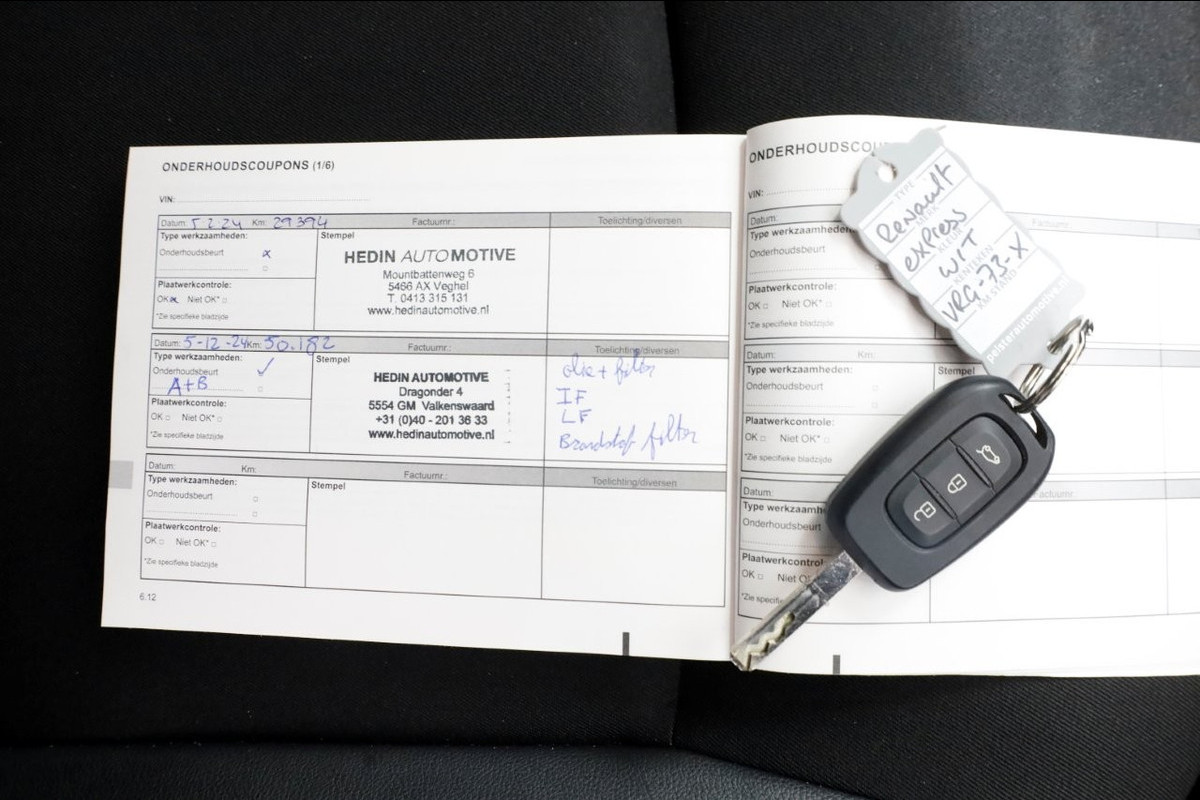 ONDERHOUDSCOUPONS (1/6)
VIN:
Datum: 5-2-24 Km: 29394 Factuurnr.: Toelichting/diversen
Type werkzaamheden:
Onderhoudsbeurt x
Plaatwerkcontrole:
OK x Niet OK*
*Zie specifieke bladzijde
Stempel
HEDIN AUTOMOTIVE
Mountbattenweg 6
5466 AX Veghel
T. 0413 315 131
www.hedinautomotive.nl
Datum: 5-12-24 Km: 50.182 Factuurnr.: Toelichting/diversen
Type werkzaamheden:
Onderhoudsbeurt ✓
A+B
Plaatwerkcontrole:
OK Niet OK*
*Zie specifieke bladzijde
Stempel
HEDIN AUTOMOTIVE
Dragonder 4
5554 GM Valkenswaard
+31 (0)40 - 201 36 33
www.hedinautomotive.nl
olie + filter
IF
LF
Brandstof filter
Datum: Km: Factuurnr.: Toelichting/diversen
Type werkzaamheden:
Onderhoudsbeurt
Plaatwerkcontrole:
OK Niet OK*
*Zie specifieke bladzijde
Stempel
6.12
ONDERHOUDSCOU
VIN:
Datum:
Type werkzaamheden
Onderhoudsbeurt
Plaatwerkcontrole:
OK Niet OK*
*Zie specifieke bladzijde
Datum: Km: Factuurnr.:
Type werkzaamheden:
Onderhoudsbeurt
Stempel
Plaatwerkcontrole:
OK Niet OK*
*Zie specifieke bladzijde
Datum: Factuurnr.:
Type werkzaamhe
Onderhoudsbeurt
Plaatwerkcontrol
OK Niet O
*Zie specifie
TYPE
Renault
MERK
express
KLEUR
WIT
KENTEKEN
VRG-73-X
KM STAND
peisterautomotive.nl